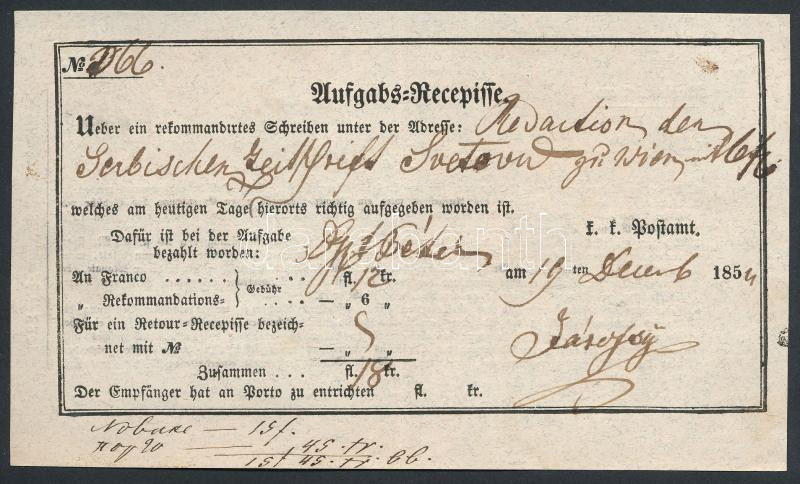 № 966.
Aufgabs-Recepisse
Ueber ein rekommandirtes Schreiben unter der Adresse: Redaction der
Serbischen Zeitschrift zu Wien mit
welches am heutigen Tage hierorts richtig aufgegeben worden ist.
Dafür ist bei der Aufgabe
bezahlt worden:
k. k. Postamt.
An Franco . . . . . . . Gebühr fl. 12 kr.
am 19 ten Decemb 1854
„ Rekommandations- . . . . — „ 6 „
Für ein Retour-Recepisse bezeich-
net mit № — „ „
Zusammen . . . fl. 18 kr.
Der Empfänger hat an Porto zu entrichten fl. kr.
— 15 f.
45. kr.
15 f 45. kr.